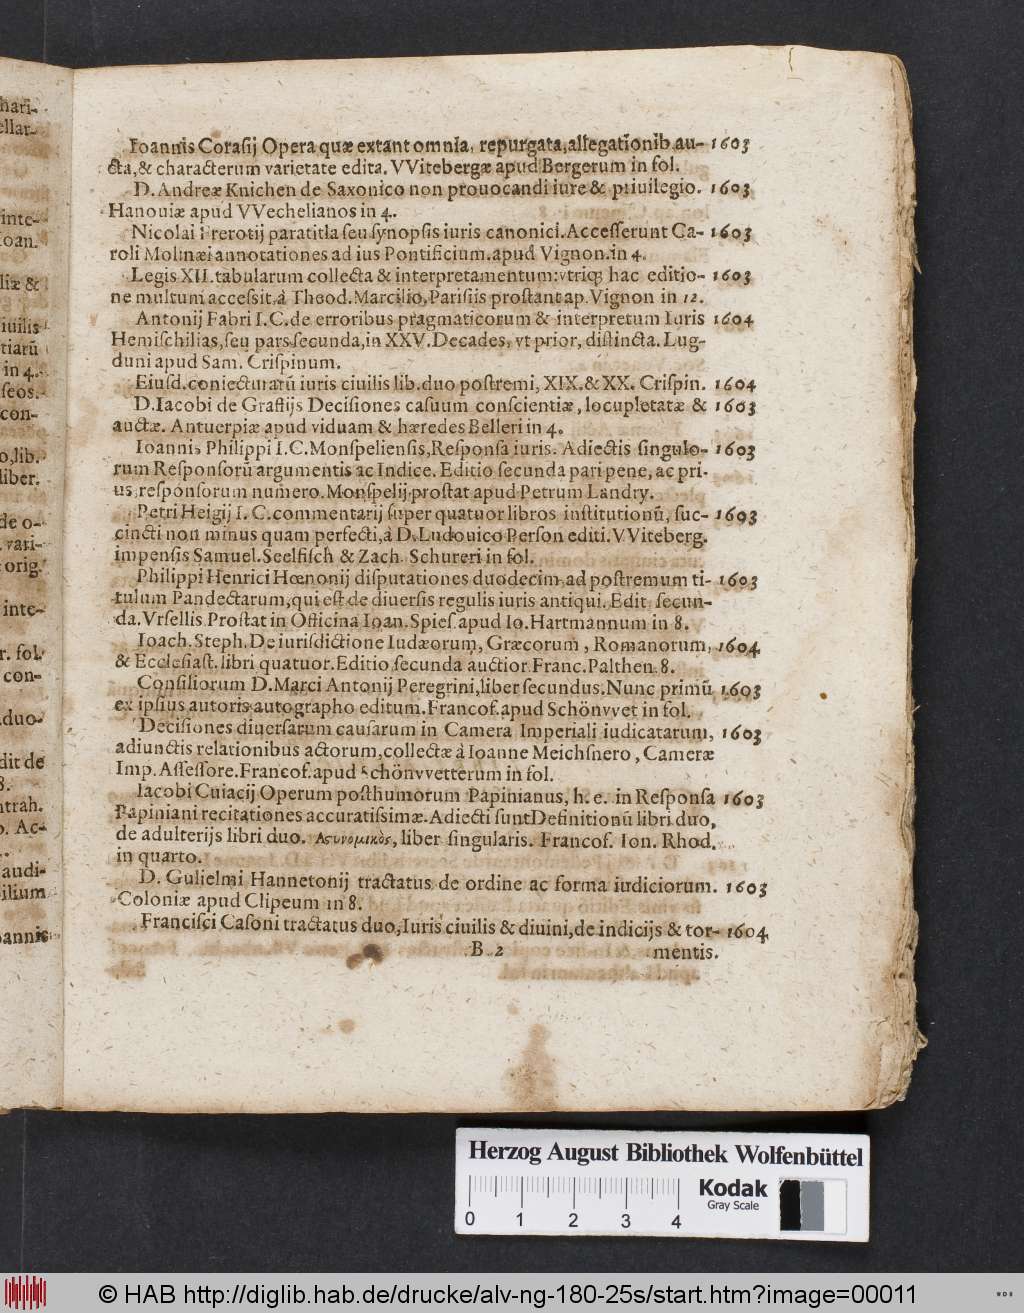 hari-
ellar-
inte-
oan.
liæ &
iuilis
tiarũ
in 4.
ſeos.
con-
o,lib.
liber.
de o-
vari-
orig.
inte-
r. fol.
con-
duo-
dit de
8.
ntrah.
o. Ac-
audi-
ilium
oannis
Ioannis Coraſij Opera quæ extant omnia, repurgata, allegationib. au- 1603
cta, & characterum varietate edita. VVitebergæ apud Bergerum in fol.
D. Andreæ Knichen de Saxonico non prouocandi iure & priuilegio. 1603
Hanouiæ apud VVechelianos in 4.
Nicolai Frerotij paratitla ſeu ſynopſis iuris canonici. Acceſſerunt Ca- 1603
roli Molinæi annotationes ad ius Pontificium. apud Vignon. in 4.
Legis XII. tabularum collecta & interpretamentum: vtriq; hac editio- 1603
ne multum acceſsit, à Theod. Marcilio, Pariſiis proſtant ap. Vignon in 12.
Antonij Fabri I. C. de erroribus pragmaticorum & interpretum Iuris 1604
Hemiſchilias, ſeu pars ſecunda, in XXV. Decades, vt prior, diſtincta. Lug-
duni apud Sam. Criſpinum.
Eiuſd. coniecturarũ iuris ciuilis lib. duo poſtremi, XIX. & XX. Criſpin. 1604
D. Iacobi de Graffijs Deciſiones caſuum conſcientiæ, locupletatæ & 1603
auctæ. Antuerpiæ apud viduam & hæredes Belleri in 4.
Ioannis Philippi I. C. Monſpelienſis, Reſponſa iuris. Adiectis ſingulo- 1603
rum Reſponſorũ argumentis ac Indice. Editio ſecunda pari pene, ac pri-
us, reſponſorum numero. Monſpelij proſtat apud Petrum Landry.
Petri Heigij I. C. commentarij ſuper quatuor libros inſtitutionũ, ſuc- 1603
cincti non minus quam perfecti, à D. Ludouico Perſon editi. VViteberg.
impenſis Samuel. Seelfiſch & Zach. Schureri in fol.
Philippi Henrici Hœnonij diſputationes duodecim, ad poſtremum ti- 1603
tulum Pandectarum, qui eſt de diuerſis regulis iuris antiqui. Edit. ſecun-
da. Vrſellis Proſtat in Officina Ioan. Spieſ. apud Io. Hartmannum in 8.
Ioach. Steph. De iuriſdictione Iudæorum, Græcorum, Romanorum, 1604
& Eccleſiaſt. libri quatuor. Editio ſecunda auctior. Franc. Palthen. 8.
Conſiliorum D. Marci Antonij Peregrini, liber ſecundus. Nunc primũ 1603
ex ipſius autoris autographo editum. Francof. apud Schönvvet in fol.
Deciſiones diuerſarum cauſarum in Camera Imperiali iudicatarum, 1603
adiunctis relationibus actorum, collectæ à Ioanne Meichſnero, Cameræ
Imp. Aſſeſſore. Francof. apud Schönvvetterum in fol.
Iacobi Cuiacij Operum poſthumorum Papinianus, h. e. in Reſponſa 1603
Papiniani recitationes accuratiſsimæ. Adiecti ſunt Definitionũ libri duo,
de adulterijs libri duo. Ἀςυνομικὸς, liber ſingularis. Francof. Ion. Rhod.
in quarto.
D. Gulielmi Hannetonij tractatus de ordine ac forma iudiciorum. 1603
Coloniæ apud Clipeum in 8.
Franciſci Caſoni tractatus duo, Iuris ciuilis & diuini, de indicijs & tor- 1604
B 2 mentis.
Herzog August Bibliothek Wolfenbüttel
Kodak
Gray Scale
0 1 2 3 4
© HAB http://diglib.hab.de/drucke/alv-ng-180-25s/start.htm?image=00011